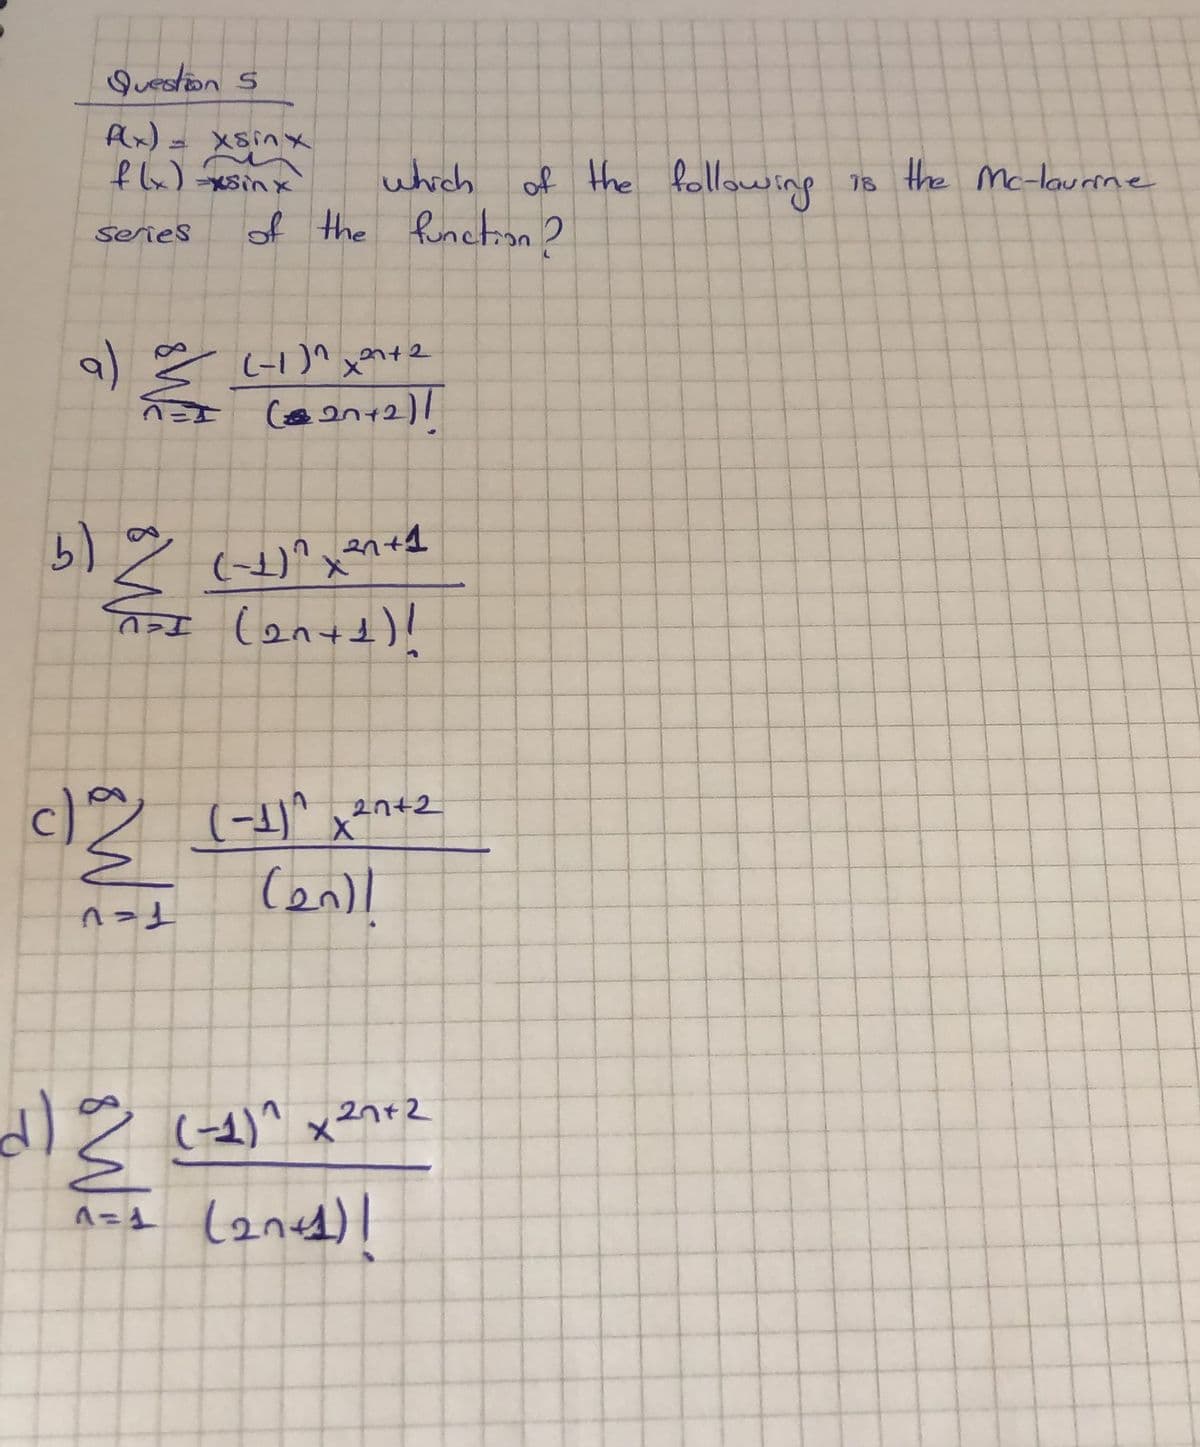 Question 5
f(x) = xsinx
f(x) =xsinx which of the following is the Mc-laurine
series of the function?
a) ∞ Σ n=1 (-1)^n x^2n+2
(2n+2)!
b) ∞ Σ n=1 (-1)^n x^2n+1
(2n+1)!
c) ∞ Σ n=1 (-1)^n x^2n+2
(2n)!
d) ∞ Σ n=1 (-1)^n x^2n+2
(2n+1)!